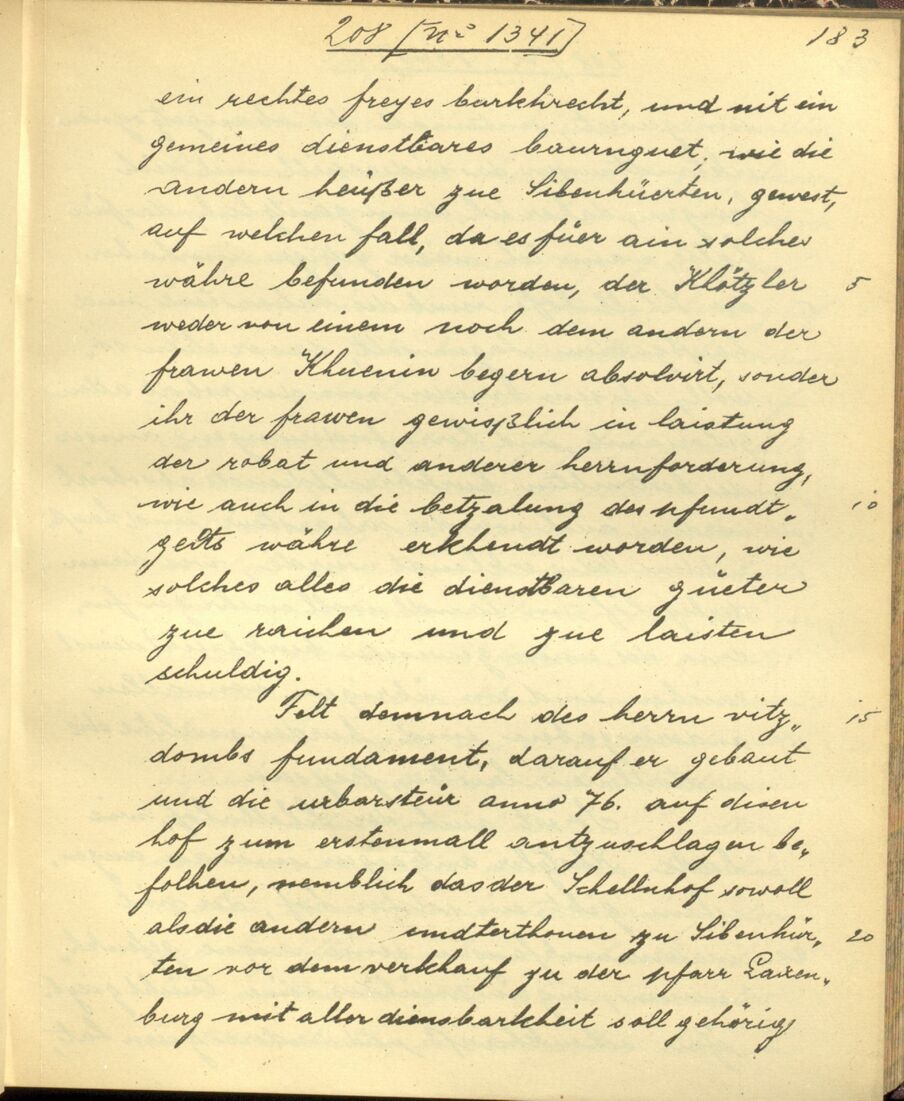 208 [No 1341] 183
ein rechtes freyes burkhrecht, und nit ein
gemeines dienstbares baurnguet, wie die
andern heüßer zue Sibenhüerten, gewest,
auf welchen fall, da es füer ain solches
währe befunden worden, der Khötzler 5
weder von einem noch dem andern der
frawen Khuenin begern absolvirt, sonder
ihr der frawen gewißlich in laistung
der robat und anderer herrnforderung,
wie auch in die betzalung des pfundt„ 10
gelts währe erkhendt worden, wie
solches alles die dienstbaren güeter
zue raichen und zue laisten
schuldig.
Felt demnach des herrn vitz„ 15
dombs fundament, darauf er gebaut
und die urbarsteür anno 76. auf disen
hof zum erstenmall antzuschlagen be„
folhen, nemblich das der Schellnhof sowoll
als die andern undterthonen zu Sibenhür„ 20
ten vor dem verkhauf zu der pfarr Laxen„
burg mit aller diensbarkheit soll gehörig